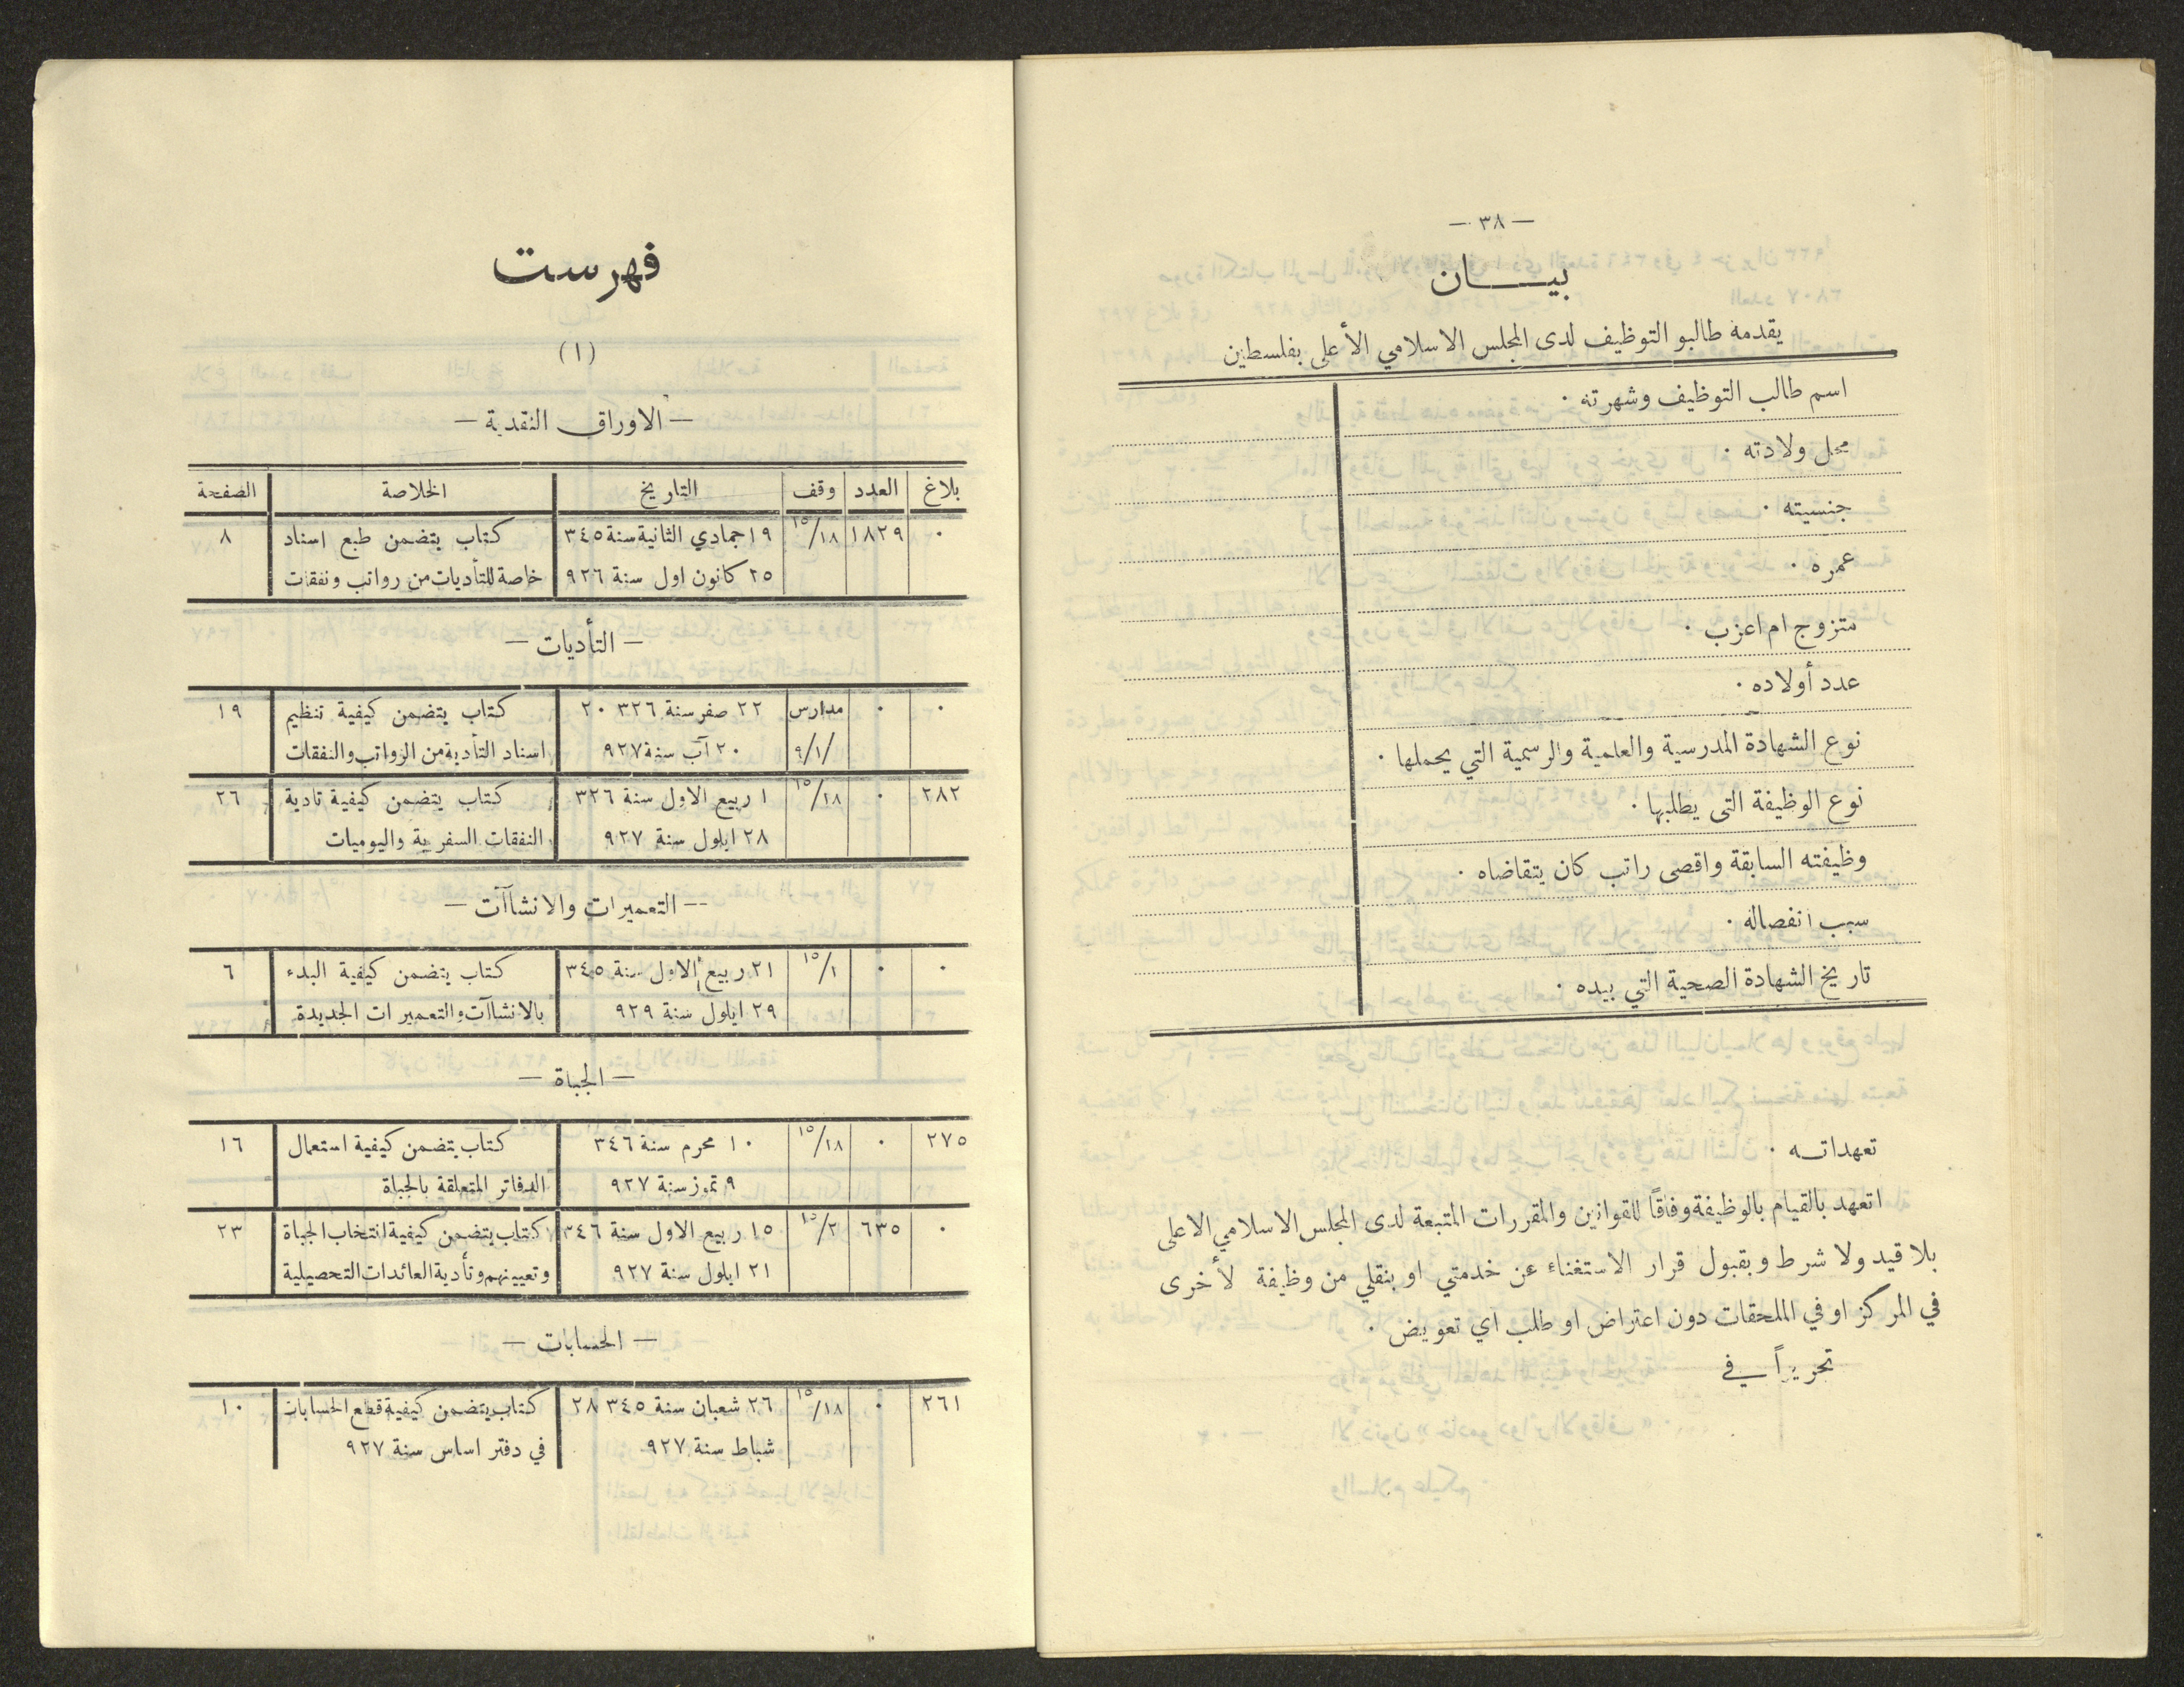 — ٣٨ —
بيـــان
يقدمه طالبو التوظيف لدى المجلس الاسلامي الأعلى بفلسطين
اسم طالب التوظيف وشهرته ·
محل ولادته ·
جنسيته ·
عمره ·
متزوج ام اعزب ·
عدد أولاده ·
نوع الشهادة المدرسية والعلمية والرسمية التي يحملها ·
نوع الوظيفة التي يطلبها ·
وظيفته السابقة واقصى راتب كان يتقاضاه ·
سبب انفصاله ·
تاريخ الشهادة الصحية التي بيده ·
تعهداتـه ·
اتعهد بالقيام بالوظيفة وفاقاً للقوانين والمقررات المتبعة لدى المجلس الاسلامي الاعلى
بلا قيد ولا شرط وبقبول قرار الاستغناء عن خدمتي او بنقلي من وظيفة لأخرى
في المركز او في الملحقات دون اعتراض او طلب اي تعويض ·
تحريراً في
فهرست
(١)
— الاوراق النقدية —
بلاغ العدد وقف التاريخ الخلاصة الصفحة
٠ ١٨٢٩ ١٥/١٨ ١٩ جمادي الثانية سنة ٣٤٥ كتاب يتضمن طبع اسناد ٨
٢٥ كانون اول سنة ٩٢٦ خاصة للتأديات من رواتب ونفقات
— التأديات —
٠ ٠ مدارس ٢٢ صفر سنة ٣٢٦ ٢٠ كتاب يتضمن كيفية تنظيم ١٩
٩/١/ ٢٠ آب سنة ٩٢٧ اسناد التأدية من الرواتب والنفقات
٢٨٢ ٠ ١٥/١٨ ١ ربيع الاول سنة ٣٢٦ كتاب يتضمن كيفية تادية ٢٦
٢٨ ايلول سنة ٩٢٧ النفقات السفرية واليوميات
-- التعميرات والانشاآت —
٠ ٠ ١٥/١ ٢١ ربيع الاول سنة ٣٤٥ كتاب يتضمن كيفية البدء ٦
٢٩ ايلول سنة ٩٢٩ بالانشاآت والتعميرات الجديدة
— الجباة —
٢٧٥ ٠ ١٥/١٨ ١٠ محرم سنة ٣٤٦ كتاب يتضمن كيفية استعمال ١٦
٩ تموز سنة ٩٢٧ الدفاتر المتعلقة بالجباة
٠ ٦٣٥ ١٥/٢ ١٥ ربيع الاول سنة ٣٤٦ كتاب يتضمن كيفية انتخاب الجباة ٢٣
٢١ ايلول سنة ٩٢٧ وتعيينهم وتأدية العائدات التحصيلية
— الحسابات —
٢٦١ ٠ ١٥/١٨ ٢٦ شعبان سنة ٣٤٥ ٢٨ كتاب يتضمن كيفية قطع الحسابات ١٠
شباط سنة ٩٢٧ في دفتر اساس سنة ٩٢٧